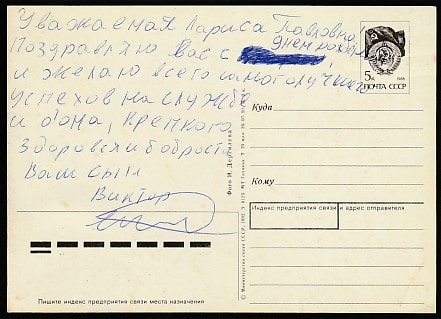 Уважаемая Лариса Павловна
Поздравляю Вас с Днем рожд
и желаю всего самого лучшего
успехов на службе
и дома, Крепкого
Здоровья и бодрости
Ваш сын
Виктор
5к
1988
ПОЧТА СССР
Куда
Кому
Индекс предприятия связи и адрес отправителя
Фото И. Дергилева
© Министерство связи СССР, 1992
Пишите индекс предприятия связи места назначения